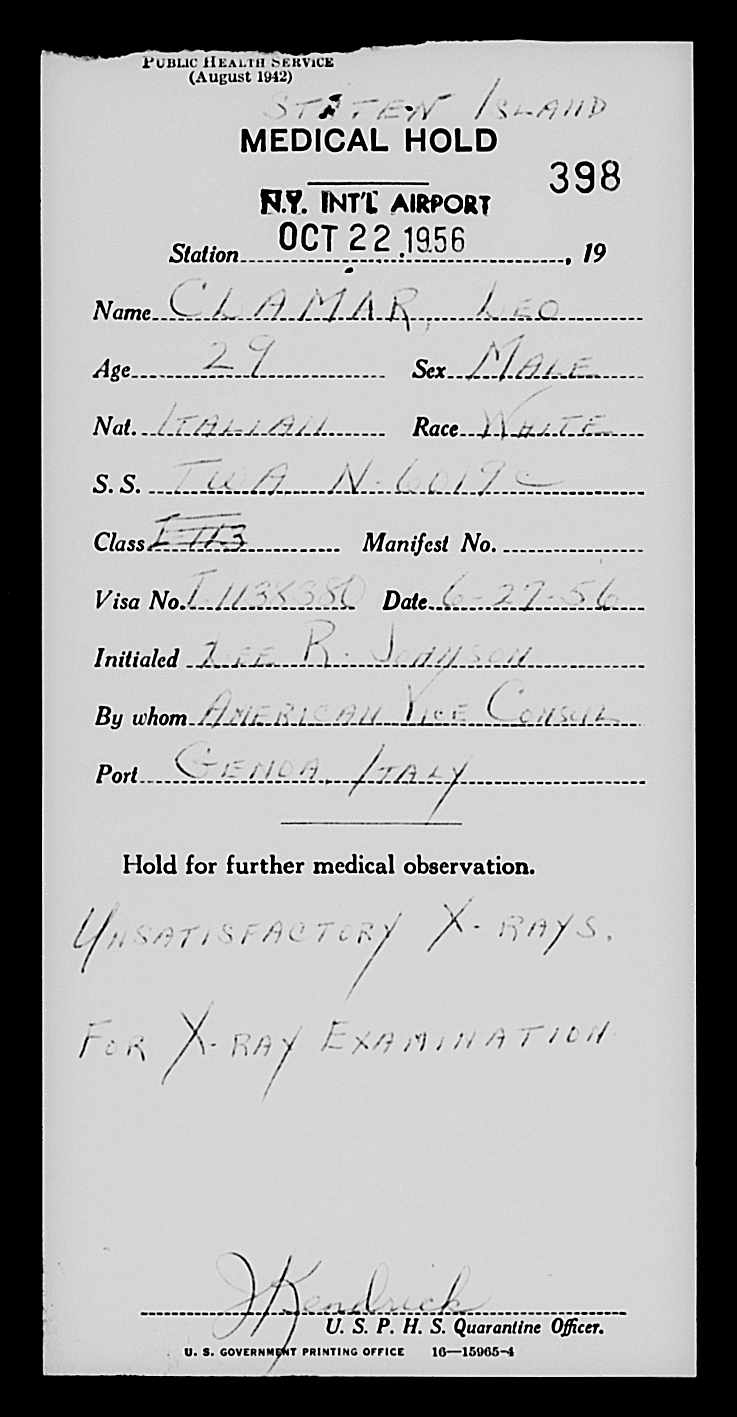 PUBLIC HEALTH SERVICE
(August 1942)
STATEN ISLAND
MEDICAL HOLD
398
N.Y. INT'L AIRPORT
OCT 22 1956
Station , 19
Name CLAMAR, LEO
Age 29 Sex MALE
Nat. ITALIAN Race WHITE
S. S. TWA N-6019C
Class Manifest No.
Visa No. I-1138380 Date 6-27-56
Initialed LEE R. JOHNSON
By whom AMERICAN VICE CONSUL
Port GENOA, ITALY
Hold for further medical observation.
UNSATISFACTORY X-RAYS.
FOR X-RAY EXAMINATION
J Kendrick
U. S. P. H. S. Quarantine Officer.
U. S. GOVERNMENT PRINTING OFFICE 16—15965-4